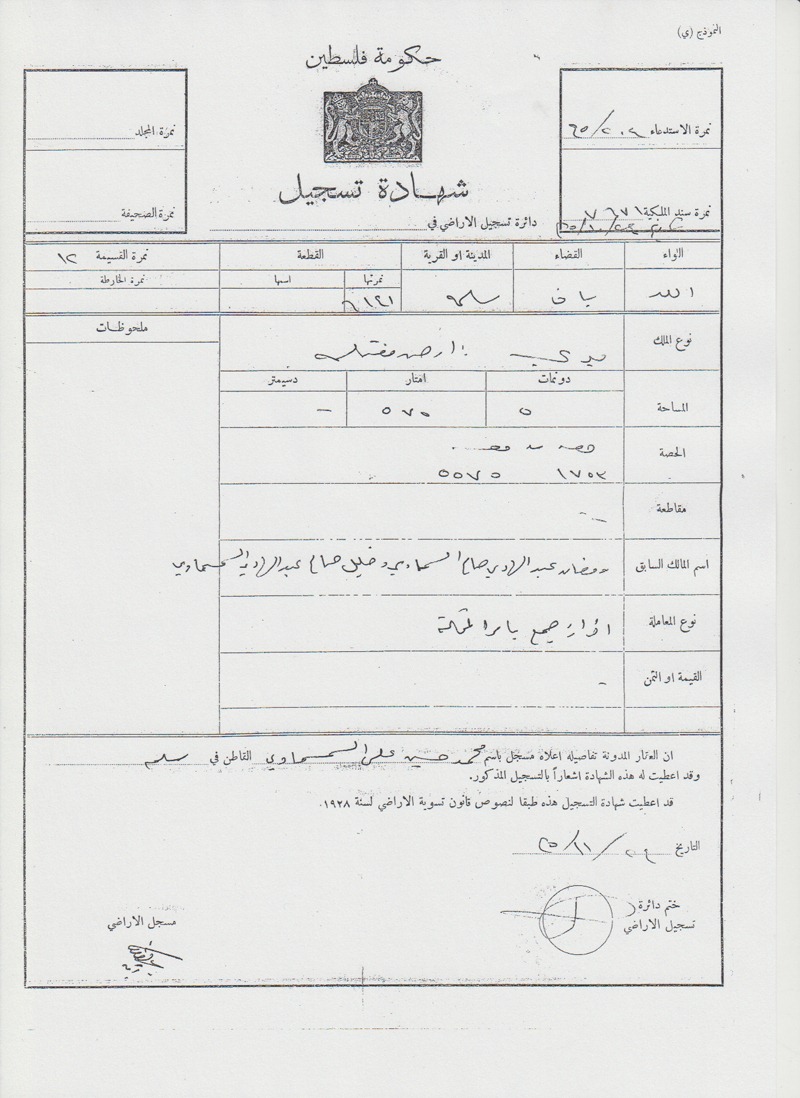 النموذج (ي)
حكومة فلسطين
نمرة الاستدعاء
نمرة المجلد
شهادة تسجيل
نمرة سند الملكية ٧٦٧١
نمرة الصحيفة
دائرة تسجيل الاراضي في
الواء القضاء المدينة او القرية القطعة نمرة القسيمة ١٢
نمرتها اسمها نمرة الخارطة
اللد يافا سلمه ٦١٢١
نوع الملك
ملحوظات
دونمات امتار دسيمتر
المساحة ٥ ٥٧٥ –
الحصة
١٧٥٣ ٥٥٧٥
مقاطعة
اسم المالك السابق رمضان عبد الهادي صالح السمماوي وخليل صالح عبد الهادي
نوع المعاملة
القيمة او الثمن -
ان العقار المدونة تفاصيله اعلاه مسجل باسم محمد حسين علي القاطن في سلمه
وقد اعطيت له هذه الشهادة اشعاراً بالتسجيل المذكور.
قد اعطيت شهادة التسجيل هذه طبقا لنصوص قانون تسوية الاراضي لسنة ١٩٢٨.
التاريخ
ختم دائرة
تسجيل الاراضي
مسجل الاراضي